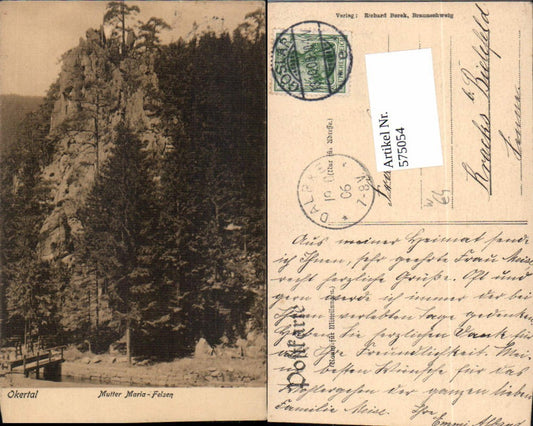 Okertal
Mutter Maria-Felsen
Verlag: Richard Borek, Braunschweig
GOSLAR
Artikel Nr.
575054
b. Bielefeld
DALB
06
7-8N
W
64
Postkarte
Aus meiner Heimat sende
ich Ihnen, sehr geehrte Frau Meise
recht herzliche Grüße. Oft und
gern werde ich immer der bei
Ihnen verlebten Tage gedenken
Haben Sie herzlichen Dank für
Ihre Freundlichkeit.
besten Wünsche für das
Wohlergehen der ganzen lieben
Familie Meise. Ihre
Emmi